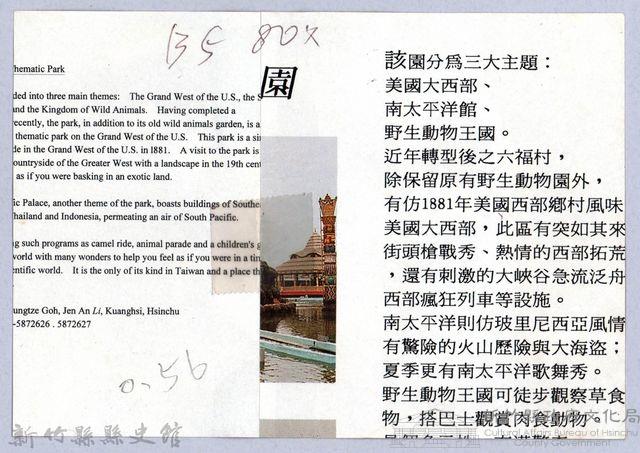 B5 80%
hematic Park
ded into three main themes: The Grand West of the U.S., the S
and the Kingdom of Wild Animals. Having completed a
recently, the park, in addition to its old wild animals garden, is a
thematic park on the Grand West of the U.S. This park is a sin
de in the Grand West of the U.S. in l881. A visit to the park is
ountryside of the Greater West with a landscape in the 19th cent
as if you were basking in an exotic land.
ic Palace, another theme of the park, boasts buildings of Southe
Thailand and Indonesia, permeating an air of South Pacific.
ng such programs as camel ride, animal parade and a children's g
world with many wonders to help you feel as if you were in a tin
entific world. It is the only of its kind in Taiwan and a place th
ungtze Goh, Jen An Li, Kuanghsi, Hsinchu
-5872626 . 5872627
0.56
園
該園分為三大主題：
美國大西部、
南太平洋館、
野生動物王國。
近年轉型後之六福村，
除保留原有野生動物園外，
有仿1881年美國西部鄉村風味
美國大西部，此區有突如其來
街頭槍戰秀、熱情的西部拓荒
，還有刺激的大峽谷急流泛舟
西部瘋狂列車等設施。
南太平洋則仿玻里尼西亞風情
有驚險的火山歷險與大海盜；
夏季更有南太平洋歌舞秀。
野生動物王國可徒步觀察草食
物，搭巴士觀賞肉食動物。
新竹縣縣史館
新竹縣政府文化局
Cultural Affairs Bureau of Hsinchu
County Government